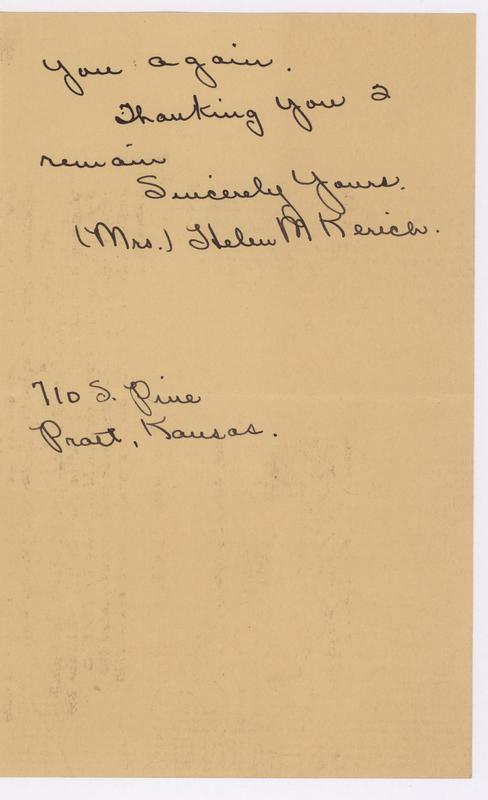 you again.
Thanking you I
remain
Sincerely Yours.
(Mrs.) Helen M Kerich.
710 S. Pine
Pratt, Kansas.